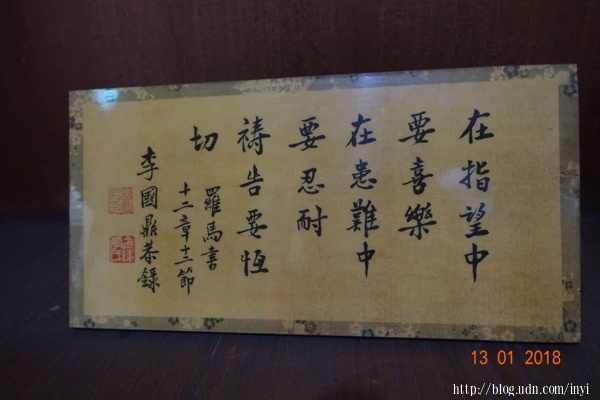 在指望中
要喜樂
在患難中
要忍耐
禱告要恆
切
羅馬書
十二章十二節
李國鼎恭錄
13 01 2018
http://blog.udn.com/inyi